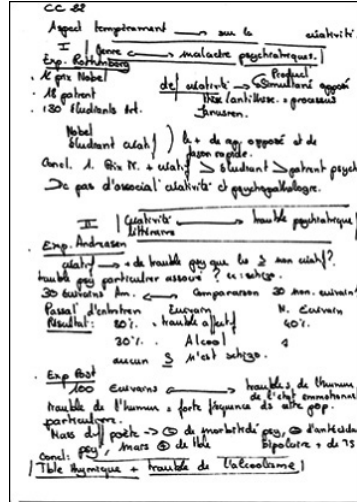 CC 22
Aspect tempérament → sur la créativité
I Genre ← → maladie psychiatriques.
Exp. Rothenberg
. prix Nobel
. 18 patient
. 130 étudiants Art.
def créativité → Simultané opposé
thèse/antithèse = processus
Janusien.
Nobel
Etudiant créatif ) le + de opposé et de
façon rapide.
Concl. 1. Prix N. + créatif > Etudiant > patient psych
Dc pas d'associat° créativité et psychopathologie.
II Créativité littéraire → trouble psychiatrique
. Exp. Andreasen
créatif → + de trouble psy que les non créatif?
trouble psy particulier associé? ex: schizo.
30 écrivains Am. ← → Comparaison 30 non. écrivain
Passat° d'entretien Ecrivain N. Ecrivain
Résultat: 80% . trouble affectif 40%.
30%. Alcool
aucun n'est schizo.
. Exp Post
100 Ecrivains → troubles de l'humeur
de l'état emmotionnel
trouble de l'humeur = forte fréquence ds cette pop.
particulière.
Mais diff poète → de morbidité psy, d'antécéda
Concl: psy, mais de tble Bipolaire + de 75
Tble thymique + trouble de l'alcoolisme